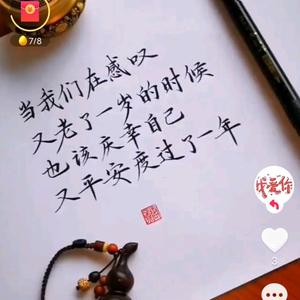 7/8
当我们在感叹
又老了一岁的时候
也该庆幸自己
又平安度过了一年
我爱你
3